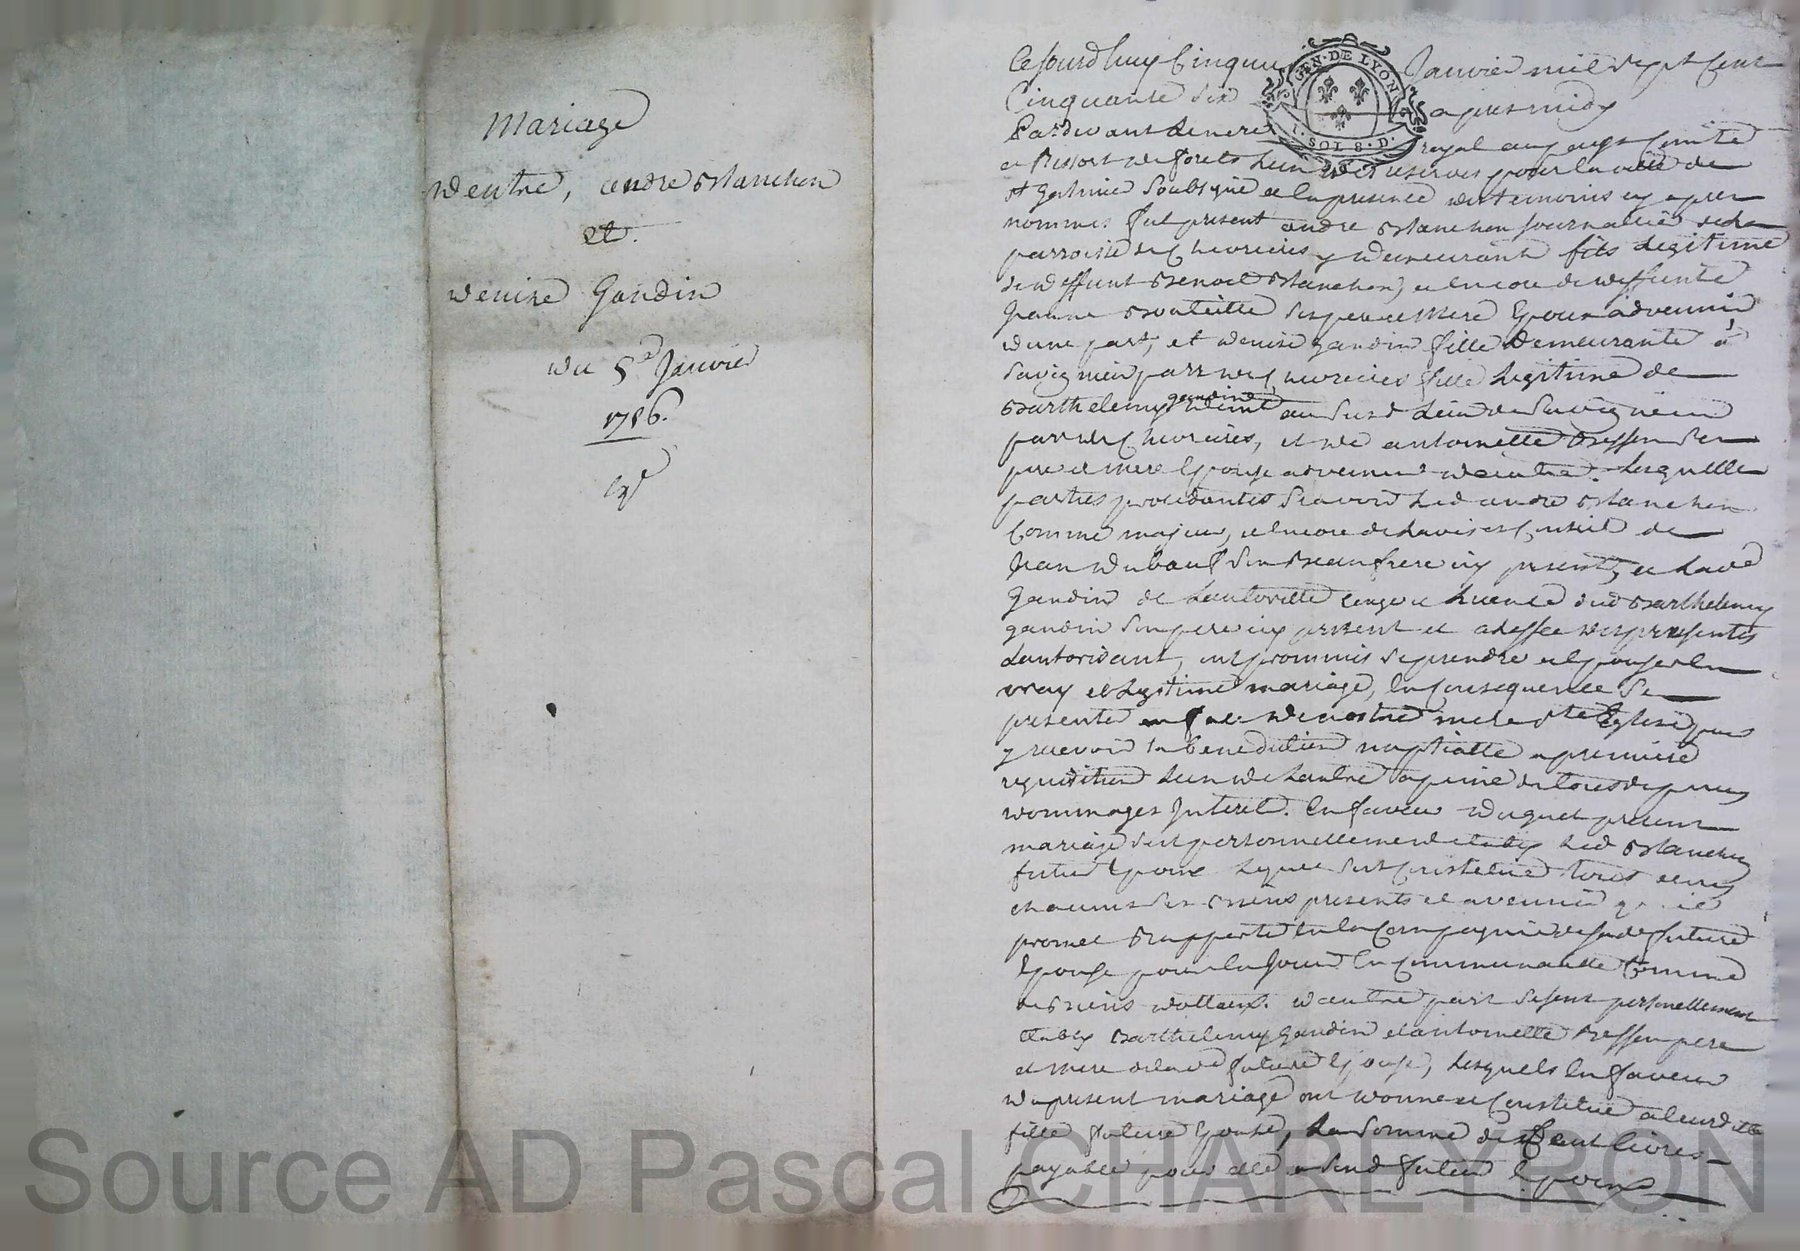 Mariage
d'entre, andre Blanchon
et.
denise Gandin
du 5e Janvier
1756.
Ce Jourdhuy Cinquie Janvier mil sept Cent
Cinquante six apres midy
Pardevant Lenore royal au pays Comté
et Ressort de forets Lun des reserves pour la ville de
st Galmier Soubsigné et En presence des temoins cy apres
nommes fut present andre Blanchon Journallie de la
parroisse de Chevrieres y demeurant fils Legitime
de deffunt Benoit Blanchon, et Encore de deffunte
Jeanne Bouteille ses pere et mere Epoux advenir
dune part, et denise gandin fille demeurante à
Savignieu parr de Chevrieres fille Legitime de
Barthelemy gandin demt au Susd Lieu de Savignieu
parr de Chevrieres, et de antoinette Besson Ses
pere et mere Epouse advenir dautre. Lesquelles
parties procedantes Scavoir Led andre Blanchon
Comme majeur, et Encore de Lavis et Conseil de
Jean Dubœuf Son Beaufrere icy present, et Lade
Gandin de Lautorité Congé et Licence dud Barthelemy
gandin Son pere icy present et a Leffet des presentes
Lautorisant, ont promis se prendre et Epouser En
vray et Legitime mariage, En Consequence Se
presenter en face de nostre mere ste Eglise pour
y recevoir la benediction nuptialle a premiere
requisition Lun de Lautre a peine de tous depens
dommages Interet. En faveur duquel present
mariage sest personnellement etably Led Blanchon
futur Epoux Lequel sest Constitué tous et uns
chacuns Ses Biens presents et avenir
promet Rapporter En la Compagnie de sade future
Epouse pour En Jouir En Communauté Comme
de Biens dottaux. dautre part se sont personnellement
Etablis Barthelemy Gandin et antoinette Besson pere
et mere de lade future Epouse, Lesquels En faveur
du present mariage ont donné et Constitué a leurdite
fille future Epouse, La Somme de Cent Livres
payable pour Elle a Sond futur Epoux
GEN. DE LYON
1. SOL 8. D.
Source AD Pascal CHAREYRON